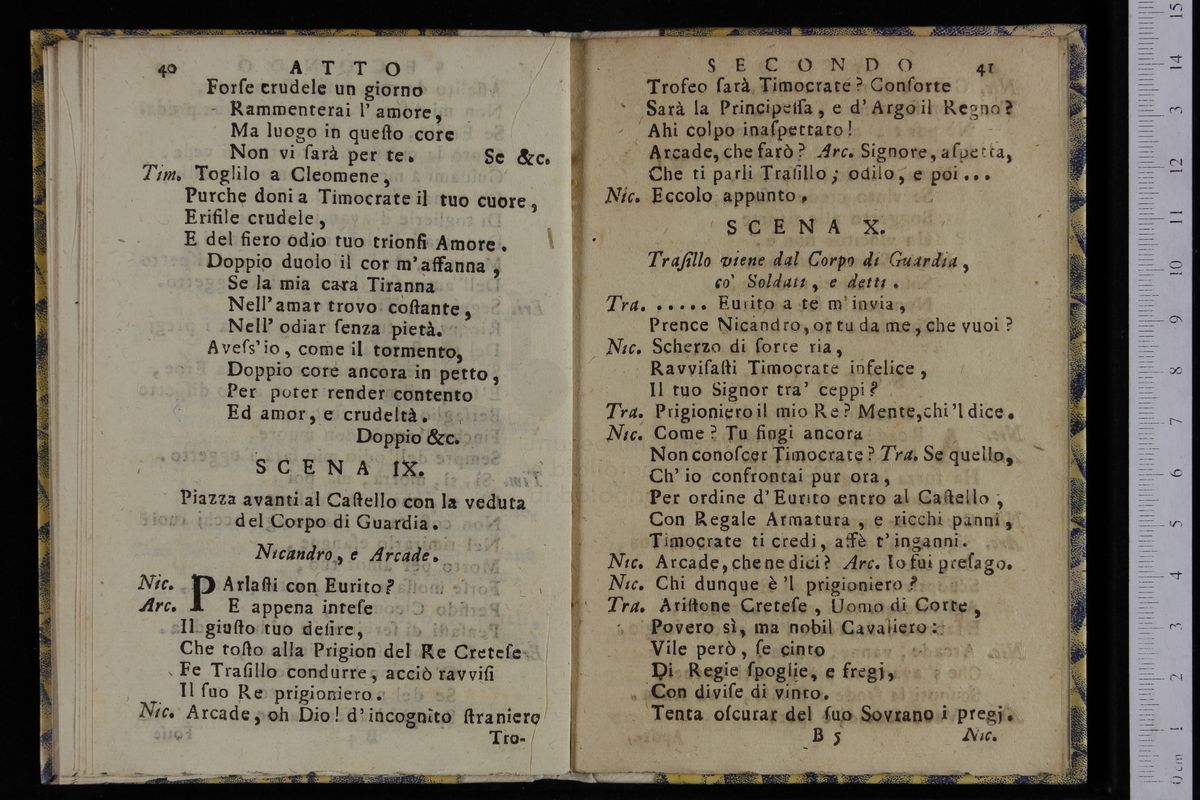 40 ATTO
Forſe crudele un giorno
Rammenterai l' amore,
Ma luogo in queſto core
Non vi ſarà per te. Se &c.
Tim. Toglilo a Cleomene,
Purche doni a Timocrate il tuo cuore,
Erifile crudele,
E del fiero odio tuo trionfi Amore.
Doppio duolo il cor m'affanna,
Se la mia cara Tiranna
Nell'amar trovo coſtante,
Nell' odiar ſenza pietà.
Aveſs'io, come il tormento,
Doppio core ancora in petto,
Per poter render contento
Ed amor, e crudeltà.
Doppio &c.
SCENA IX.
Piazza avanti al Caſtello con la veduta
del Corpo di Guardia.
Nicandro, e Arcade.
Nic. PArlaſti con Eurito?
Arc. E appena inteſe
Il giuſto tuo deſire,
Che toſto alla Prigion del Re Creteſe
Fe Traſillo condurre, acciò ravviſi
Il ſuo Re prigioniero.
Nic. Arcade, oh Dio! d'incognito ſtraniero
Tro-
SECONDO 41
Trofeo ſarà Timocrate? Conſorte
Sarà la Principeſſa, e d'Argo il Regno?
Ahi colpo inaſpettato!
Arcade, che farò? Arc. Signore, aſpetta,
Che ti parli Traſillo; odilo, e poi...
Nic. Eccolo appunto.
SCENA X.
Traſillo viene dal Corpo di Guardia,
co' Soldati, e detti.
Tra. ..... Eurito a te m'invia,
Prence Nicandro, or tu da me, che vuoi?
Nic. Scherzo di ſorte ria,
Ravviſaſti Timocrate infelice,
Il tuo Signor tra' ceppi?
Tra. Prigioniero il mio Re? Mente, chi 'l dice.
Nic. Come? Tu fingi ancora
Non conoſcer Timocrate? Tra. Se quello,
Ch' io confrontai pur ora,
Per ordine d'Eurito entro al Caſtello,
Con Regale Armatura, e ricchi panni,
Timocrate ti credi, affè t'inganni.
Nic. Arcade, che ne dici? Arc. Io fui preſago.
Nic. Chi dunque è 'l prigioniero?
Tra. Ariſtone Creteſe, Uomo di Corte,
Povero sì, ma nobil Cavaliero:
Vile però, ſe cinto
Di Regie ſpoglie, e fregj,
Con diviſe di vinto.
Tenta oſcurar del ſuo Sovrano i pregj.
B 5 Nic.
0 cm 1 2 3 4 5 6 7 8 9 10 11 12 13 14 15